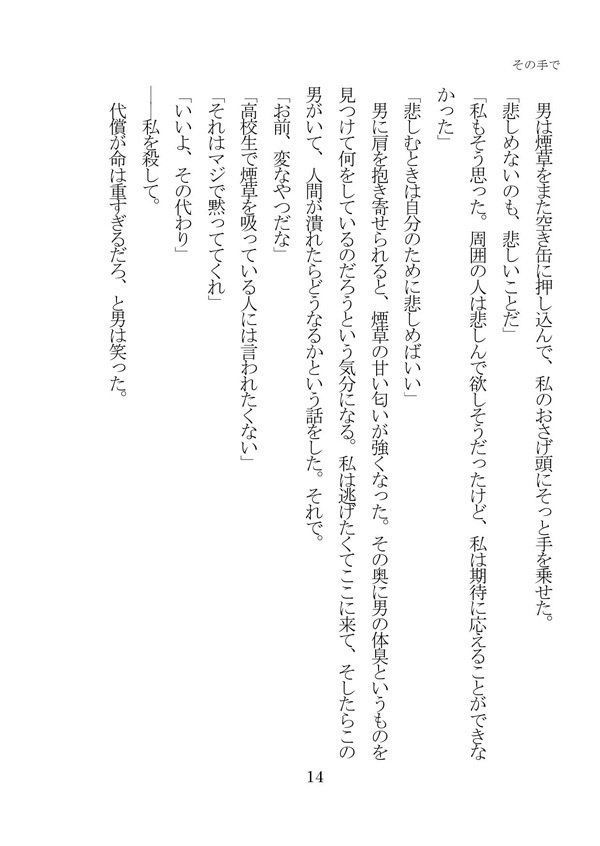 その手で
男は煙草をまた空き缶に押し込んで、私のおさげ頭にそっと手を乗せた。
「悲しめないのも、悲しいことだ」
「私もそう思った。周囲の人は悲しんで欲しそうだったけど、私は期待に応えることができな
かった」
「悲しむときは自分のために悲しめばいい」
男に肩を抱き寄せられると、煙草の甘い匂いが強くなった。その奥に男の体臭というものを
見つけて何をしているのだろうという気分になる。私は逃げたくてここに来て、そしたらこの
男がいて、人間が潰れたらどうなるかという話をした。それで。
「お前、変なやつだな」
「高校生で煙草を吸っている人には言われたくない」
「それはマジで黙っててくれ」
「いいよ、その代わり」
――私を殺して。
代償が命は重すぎるだろ、と男は笑った。
14